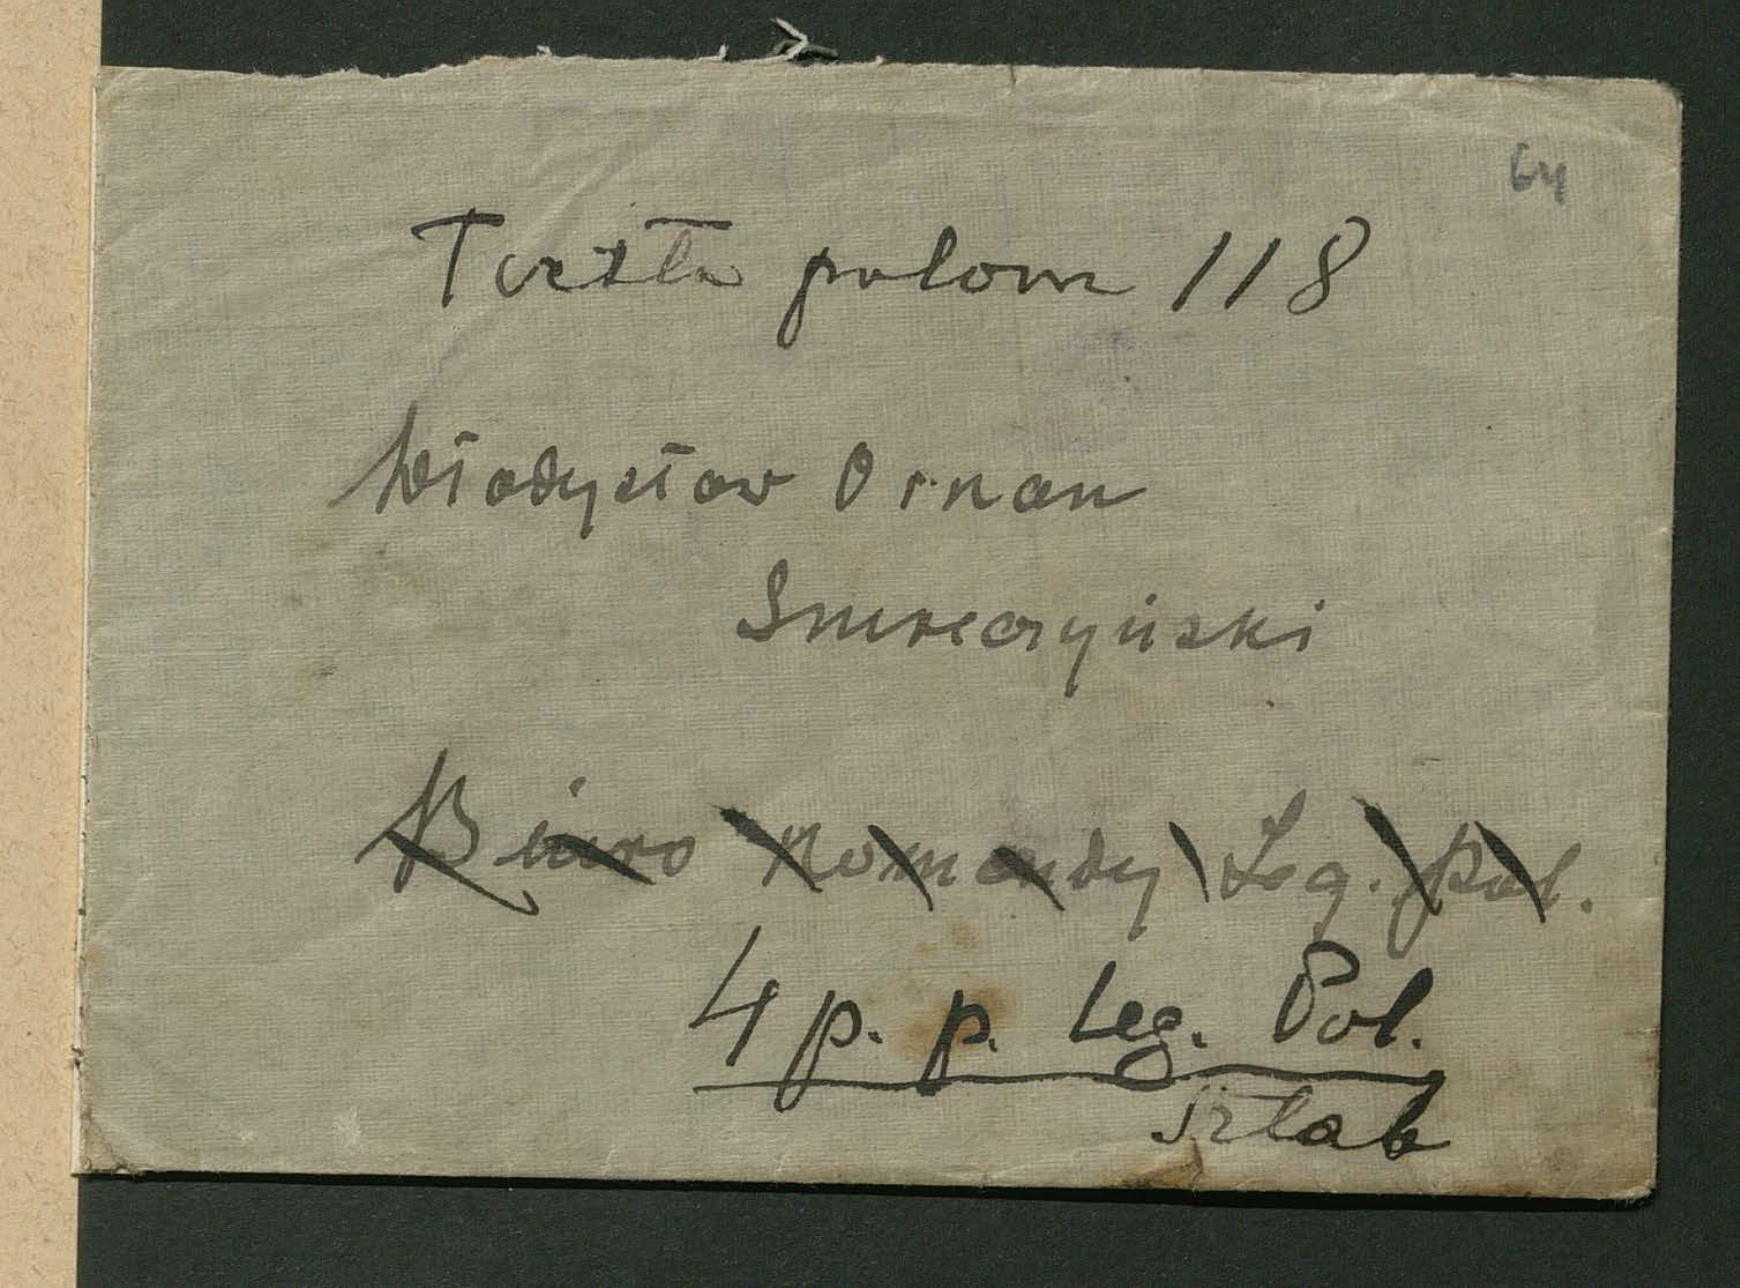 64
Poczta polowa 118
Władysław Orkan
Smreczyński
Biuro Komendy Leg. Pol.
4 p. p. Leg. Pol.
Sztab